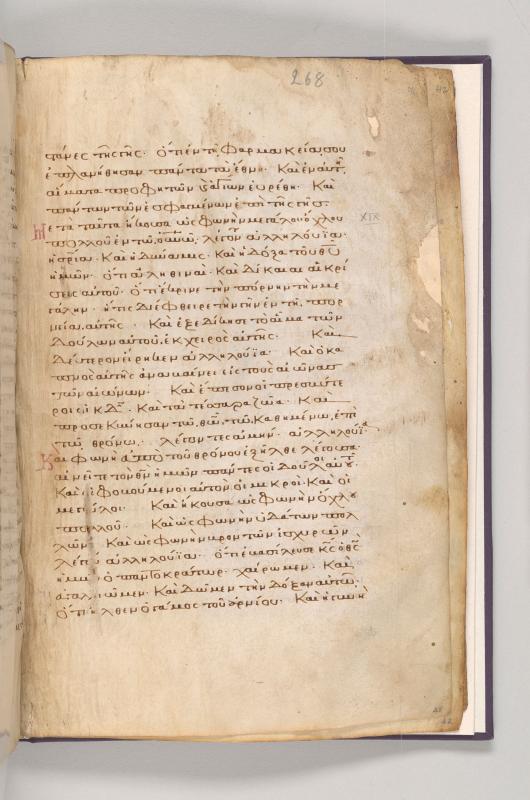 268
τάνες τῆς γῆς· ὅτι ἐν τῇ φαρμακεία σου
ἐπλανήθησαν πάντα τὰ ἔθνη· Καὶ ἐν αὐτῇ
αἵματα προφητῶν καὶ ἁγίων εὑρέθη· Καὶ
πάντων τῶν ἐσφαγμένων ἐπὶ τῆς γῆς·
Μετὰ ταῦτα ἤκουσα ὡς φωνὴν μεγάλου ὄχλου
XIX
πολλοῦ ἐν τῷ οὐνῷ, λέγον ἀλληλούϊα·
ἡ σρία· Καὶ ἡ δύναμις· Καὶ ἡ δόξα τοῦ θῦ
ἡμῶν· ὅτι ἀληθιναὶ· Καὶ δίκαιαι αἱ κρί
σεις αὐτοῦ· ὅτι ἔκρινε τὴν πόρνην τὴν με
γάλην· ἥτις διέφθειρε τὴν γῆν ἐν τῇ πορ
νεία αὐτῆς· Καὶ ἐξεδίκησε τὸ αἷμα τῶν
δούλων αὐτοῦ ἐκ χειρος αὐτῆς· Καὶ
δεύτερον εἴρηκεν ἀλληλούϊα· Καὶ ὁ κα
πνὸς αὐτῆς ἀναβαίνει εἰς τοὺς αἰῶνας
τῶν αἰώνων· Καὶ ἔπεσον οἱ πρεσβύτε
ροι οἱ κδ· Καὶ τὰ τέσσαρα ζῶα· Καὶ
προσεκύνησαν τῷ θῶ, τῷ καθημένω, ἐπὶ
τῷ θρόνω· λέγοντες ἀμήν· ἀλληλούϊα
Καὶ φωνὴ ἀπὸ τοῦ θρόνου ἐξῆλθε λέγουσα·
αἰνεῖτε τὸν θν ἡμῶν πάντες οἱ δοῦλοι αὐτοῦ·
Καὶ οἱ φοβούμενοι αὐτὸν οἱ μικροὶ· Καὶ οἱ
μεγάλοι· Καὶ ἤκουσα ὡς φωνὴν ὄχλου
πολλοῦ· Καὶ ὡς φωνὴν ὑδάτων πολ
λῶν· Καὶ ὡς φωνὴν βροντῶν ἰσχυρῶν
λέγων ἀλληλούϊα· ὅτι ἐβασίλευσε κς ὁ θς
ἡμῶν ὁ παντοκράτωρ· χαίρωμεν· Καὶ
ἀγαλλιῶμεν· Καὶ δῶμεν τὴν δόξαν αὐτῷ·
ὅτι ἦλθεν ὁ γάμος τοῦ ἀρνίου· Καὶ ἡ γυνὴ